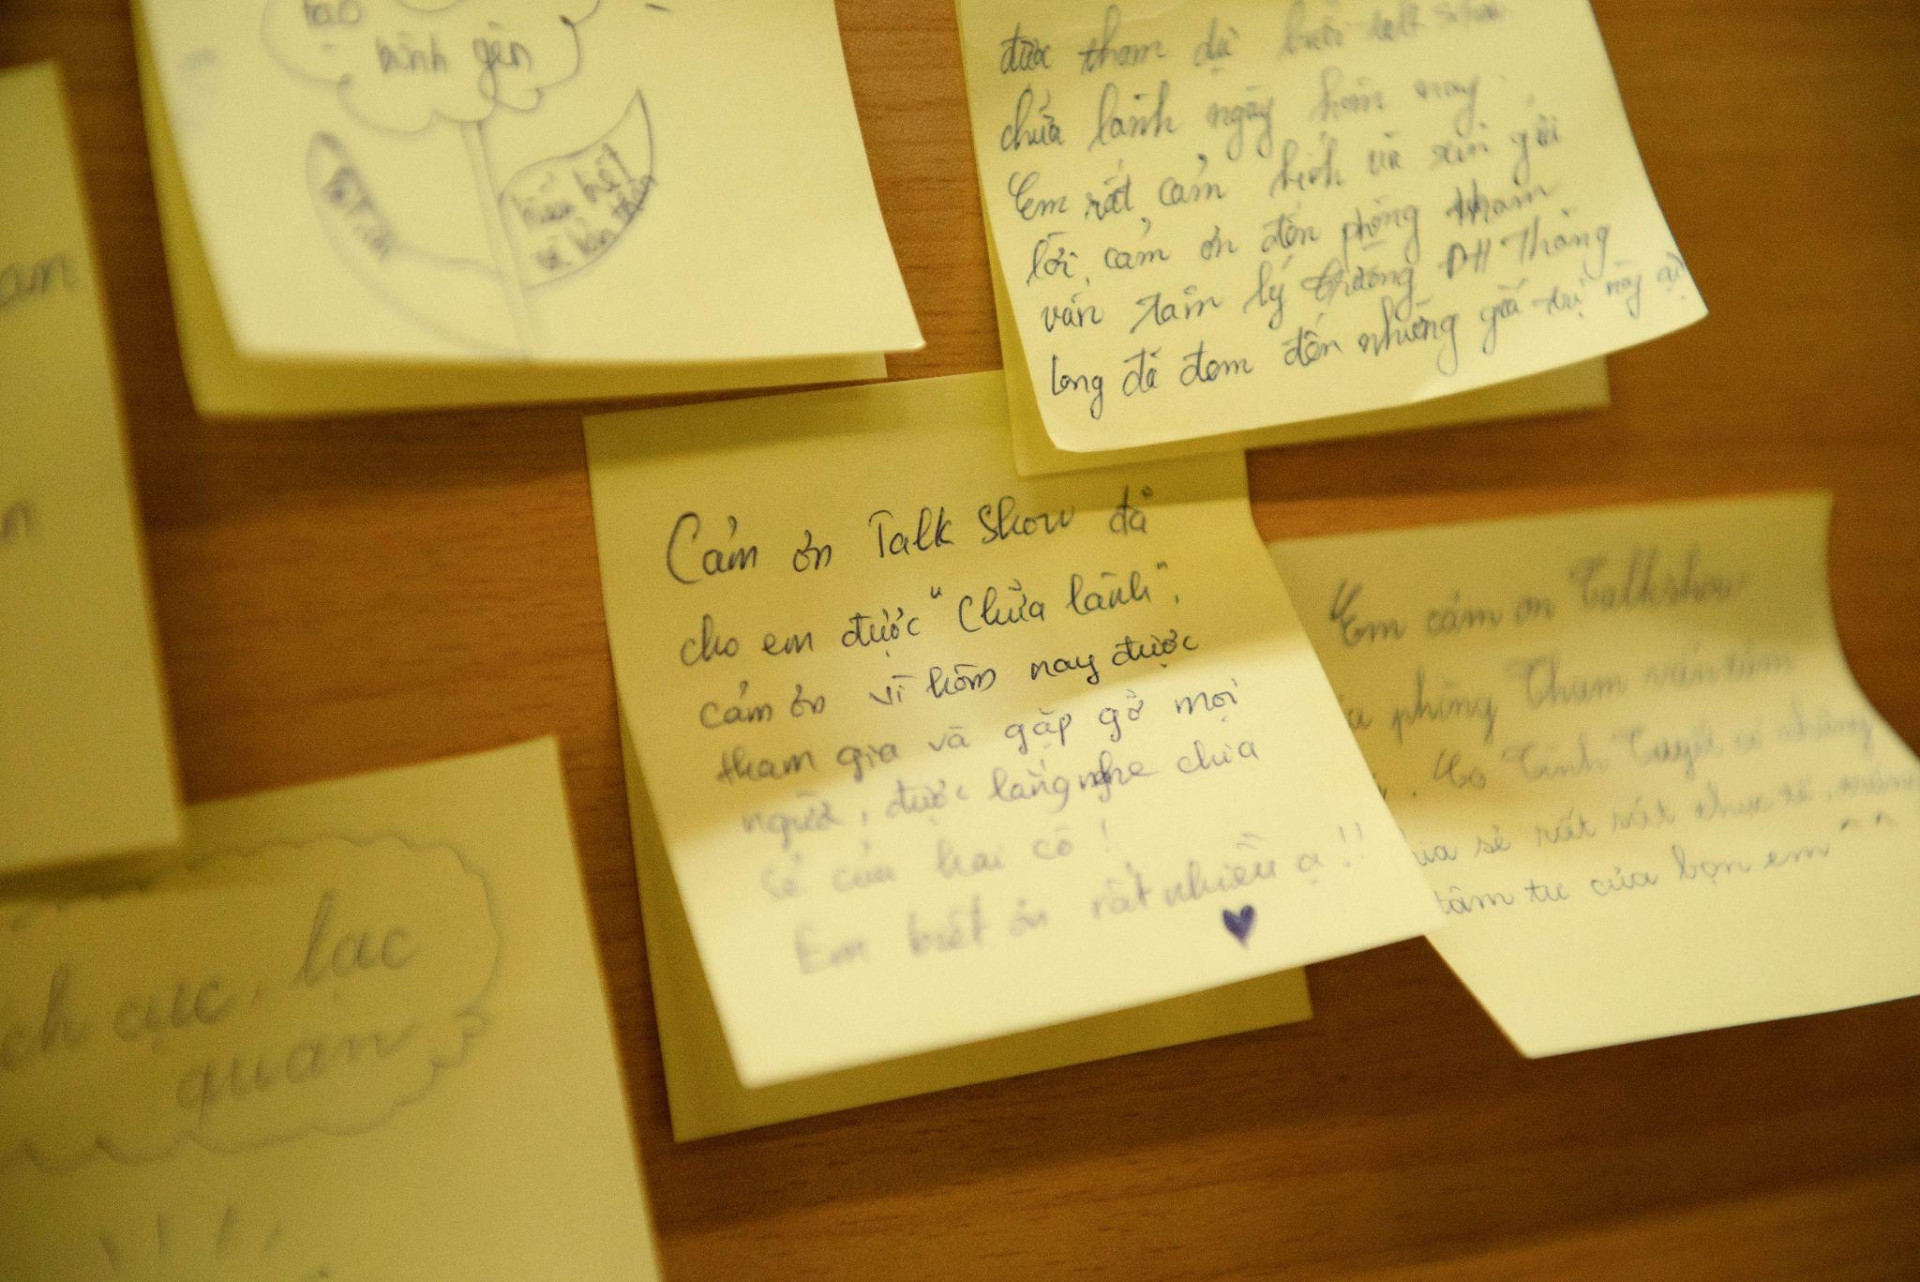 bình yên
hiểu hết
về bản thân
được tham dự buổi talk show
chữa lành ngày hôm nay.
Em rất cảm kích và xin gửi
lời cảm ơn đến phòng tham
vấn tâm lý trường ĐH Thăng
long đã đem đến những giá trị này ạ
Cảm ơn Talk Show đã
cho em được "Chữa lành",
cảm ơn vì hôm nay được
tham gia và gặp gỡ mọi
người, được lắng nghe chia
sẻ của hai cô!
Em biết ơn rất nhiều ạ!!
Em cảm ơn Talkshow
phòng Tham vấn tâm
Tình Tuyết
sẻ rất rất thực tế,
tâm tư của bọn em ^^
an
n
ch cực, lạc
quan